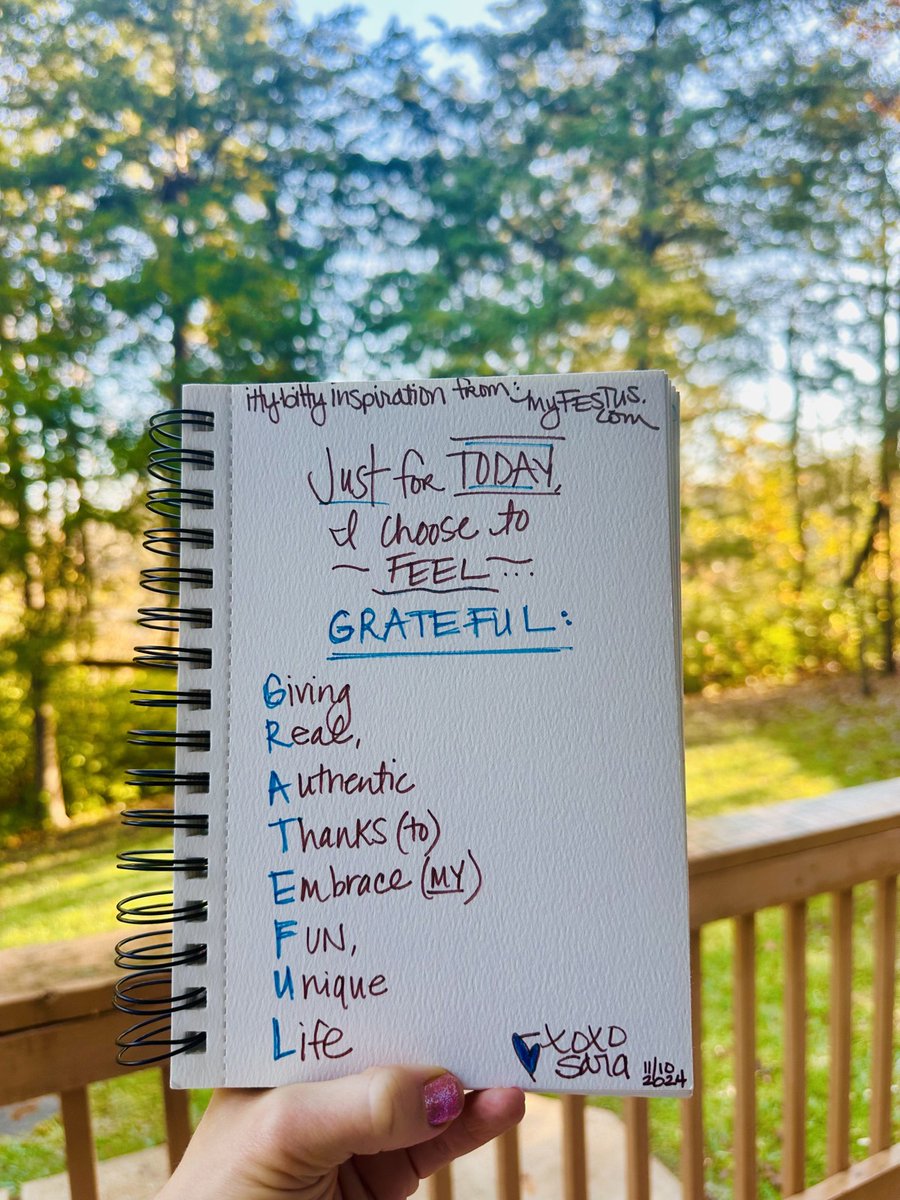 itty-bitty inspiration from: MYFESTUS.
com
Just for TODAY,
I choose to
~ FEEL ~...
GRATEFUL:
Giving
Real,
Authentic
Thanks (to)
Embrace (MY)
FUN,
Unique
Life
xoxo
sara
11/10
2024